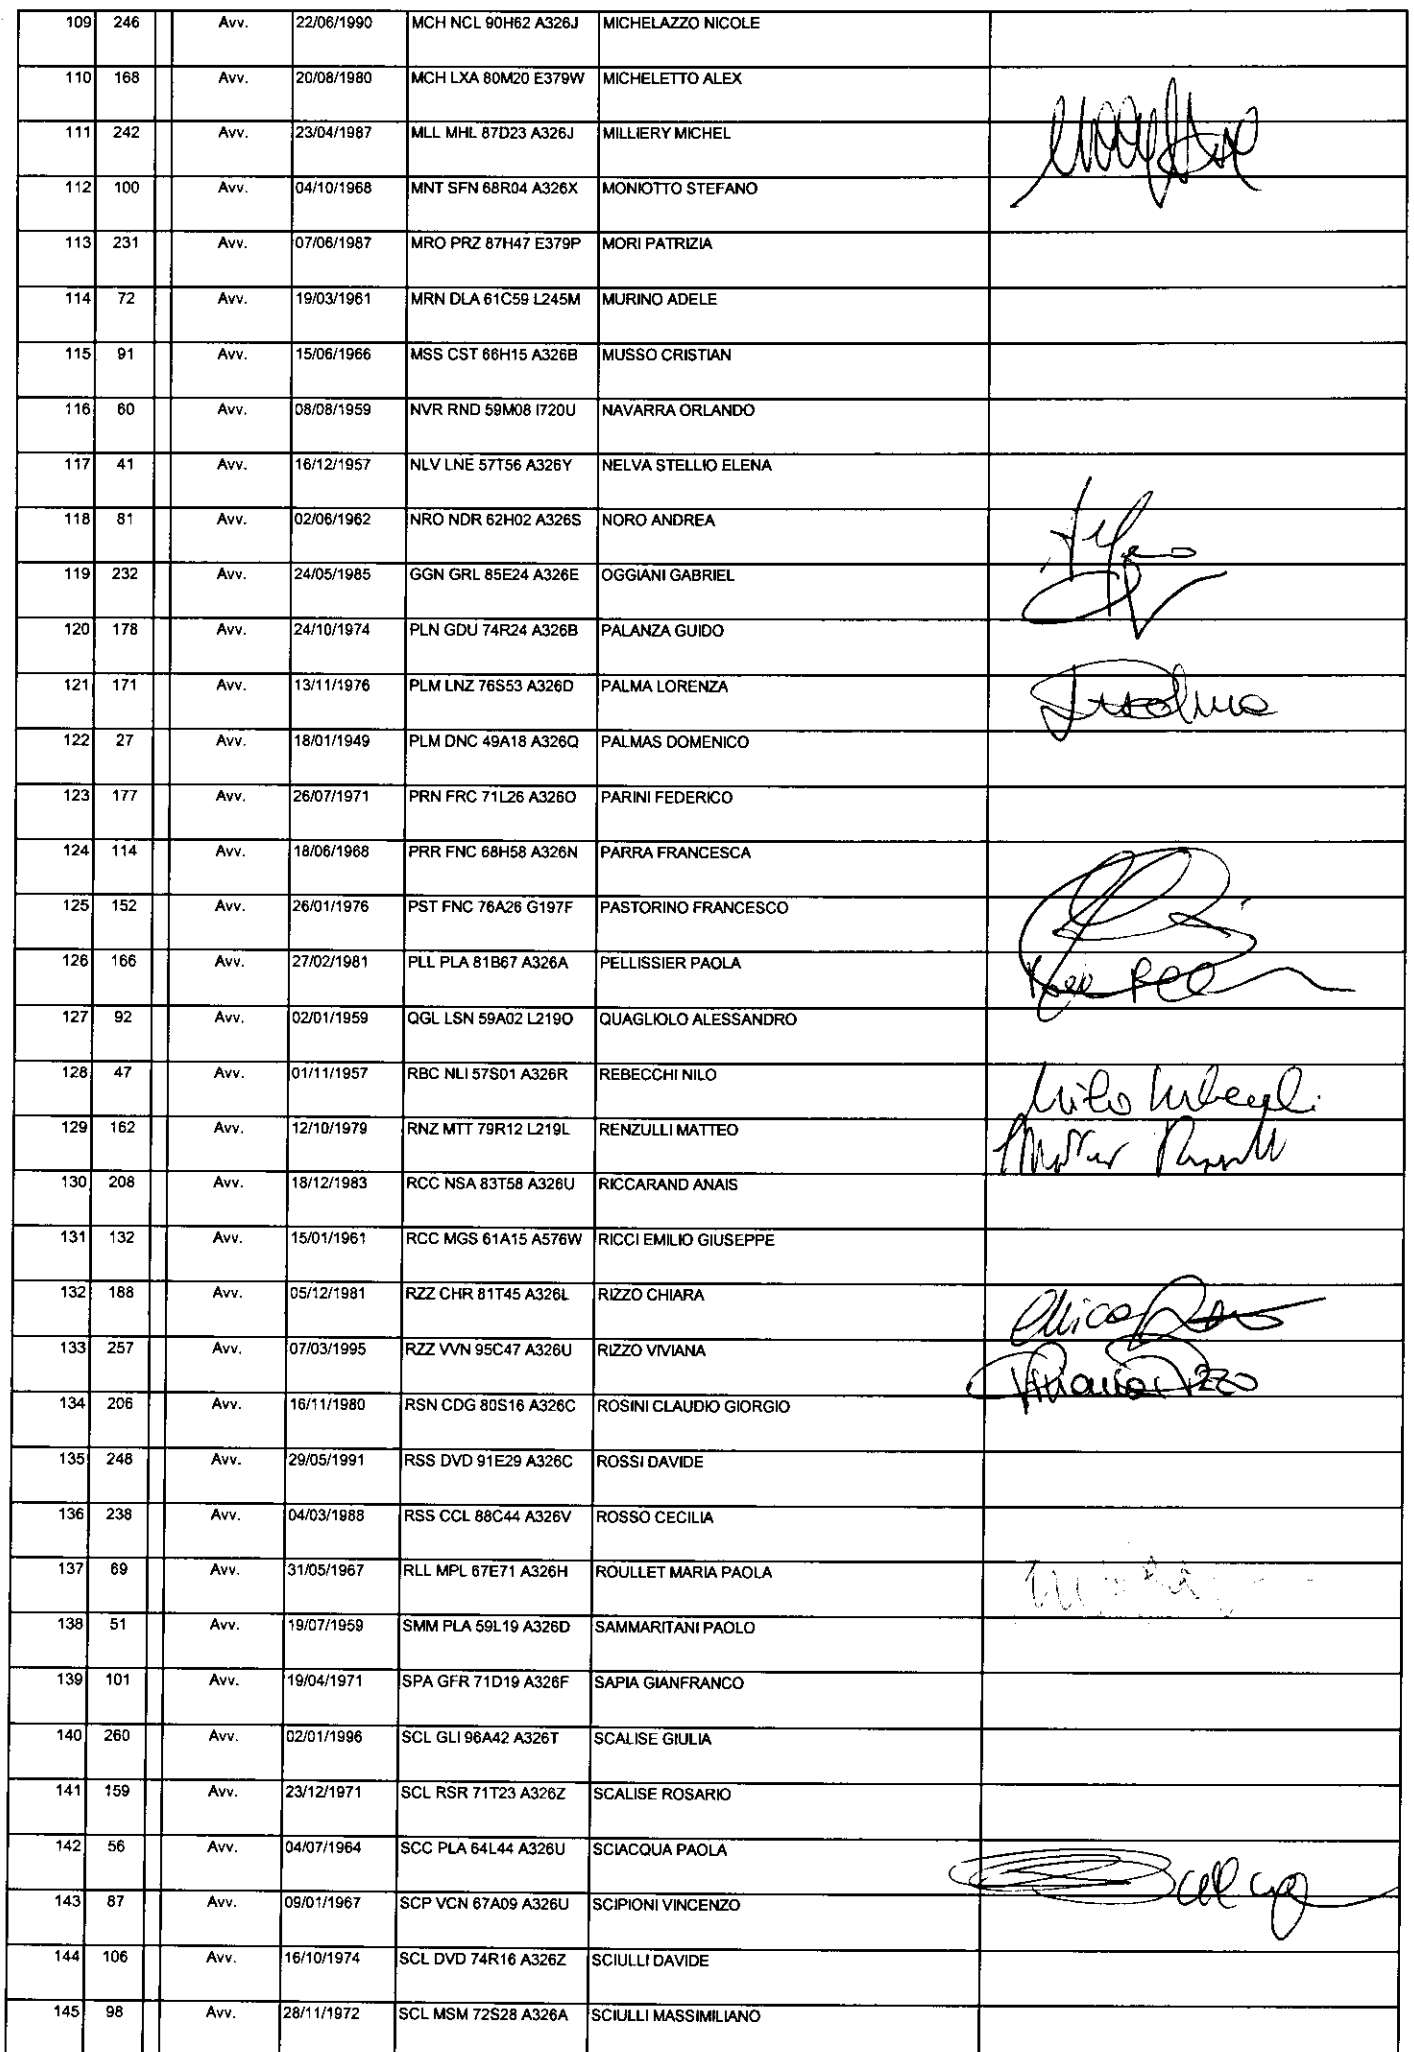 109 246 Avv. 22/06/1990 MCH NCL 90H62 A326J MICHELAZZO NICOLE
110 168 Avv. 20/08/1980 MCH LXA 80M20 E379W MICHELETTO ALEX
111 242 Avv. 23/04/1987 MLL MHL 87D23 A326J MILLIERY MICHEL
112 100 Avv. 04/10/1968 MNT SFN 68R04 A326X MONIOTTO STEFANO
113 231 Avv. 07/06/1987 MRO PRZ 87H47 E379P MORI PATRIZIA
114 72 Avv. 19/03/1961 MRN DLA 61C59 L245M MURINO ADELE
115 91 Avv. 15/06/1966 MSS CST 66H15 A326B MUSSO CRISTIAN
116 60 Avv. 08/08/1959 NVR RND 59M08 I720U NAVARRA ORLANDO
117 41 Avv. 16/12/1957 NLV LNE 57T56 A326Y NELVA STELLIO ELENA
118 81 Avv. 02/06/1962 NRO NDR 62H02 A326S NORO ANDREA
119 232 Avv. 24/05/1985 GGN GRL 85E24 A326E OGGIANI GABRIEL
120 178 Avv. 24/10/1974 PLN GDU 74R24 A326B PALANZA GUIDO
121 171 Avv. 13/11/1976 PLM LNZ 76S53 A326D PALMA LORENZA
122 27 Avv. 18/01/1949 PLM DNC 49A18 A326Q PALMAS DOMENICO
123 177 Avv. 26/07/1971 PRN FRC 71L26 A326O PARINI FEDERICO
124 114 Avv. 18/06/1968 PRR FNC 68H58 A326N PARRA FRANCESCA
125 152 Avv. 26/01/1976 PST FNC 76A26 G197F PASTORINO FRANCESCO
126 166 Avv. 27/02/1981 PLL PLA 81B67 A326A PELLISSIER PAOLA
127 92 Avv. 02/01/1959 QGL LSN 59A02 L219O QUAGLIOLO ALESSANDRO
128 47 Avv. 01/11/1957 RBC NLI 57S01 A326R REBECCHI NILO
129 162 Avv. 12/10/1979 RNZ MTT 79R12 L219L RENZULLI MATTEO
130 208 Avv. 18/12/1983 RCC NSA 83T58 A326U RICCARAND ANAIS
131 132 Avv. 15/01/1961 RCC MGS 61A15 A576W RICCI EMILIO GIUSEPPE
132 188 Avv. 05/12/1981 RZZ CHR 81T45 A326L RIZZO CHIARA
133 257 Avv. 07/03/1995 RZZ VVN 95C47 A326U RIZZO VIVIANA
134 206 Avv. 16/11/1980 RSN CDG 80S16 A326C ROSINI CLAUDIO GIORGIO
135 248 Avv. 29/05/1991 RSS DVD 91E29 A326C ROSSI DAVIDE
136 238 Avv. 04/03/1988 RSS CCL 88C44 A326V ROSSO CECILIA
137 69 Avv. 31/05/1967 RLL MPL 67E71 A326H ROULLET MARIA PAOLA
138 51 Avv. 19/07/1959 SMM PLA 59L19 A326D SAMMARITANI PAOLO
139 101 Avv. 19/04/1971 SPA GFR 71D19 A326F SAPIA GIANFRANCO
140 260 Avv. 02/01/1996 SCL GLI 96A42 A326T SCALISE GIULIA
141 159 Avv. 23/12/1971 SCL RSR 71T23 A326Z SCALISE ROSARIO
142 56 Avv. 04/07/1964 SCC PLA 64L44 A326U SCIACQUA PAOLA
143 87 Avv. 09/01/1967 SCP VCN 67A09 A326U SCIPIONI VINCENZO
144 106 Avv. 16/10/1974 SCL DVD 74R16 A326Z SCIULLI DAVIDE
145 98 Avv. 28/11/1972 SCL MSM 72S28 A326A SCIULLI MASSIMILIANO